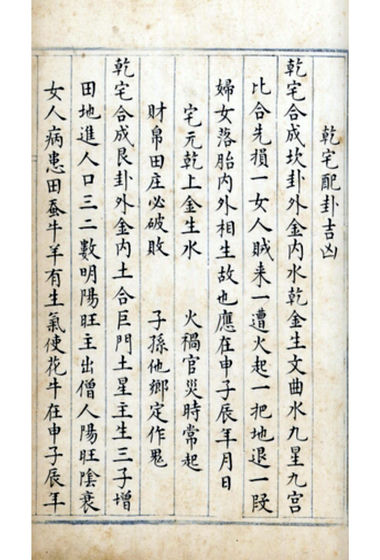 乾宅配卦吉凶
乾宅合成坎卦外金內水乾金生文曲水九星九宮
比合先損一女人賊来一遭火起一把地退一叚
婦女落胎内外相生故也應在申子辰年月日
宅元乾上金生水 火禍官災時常起
財帛田庄必破敗 子孫他鄉定作鬼
乾宅合成艮卦外金内土合巨門土星主生三子增
田地進人口三二數明陽旺主出僧人陽旺陰衰
女人病患田蚕牛羊有生氣使花牛在申子辰年